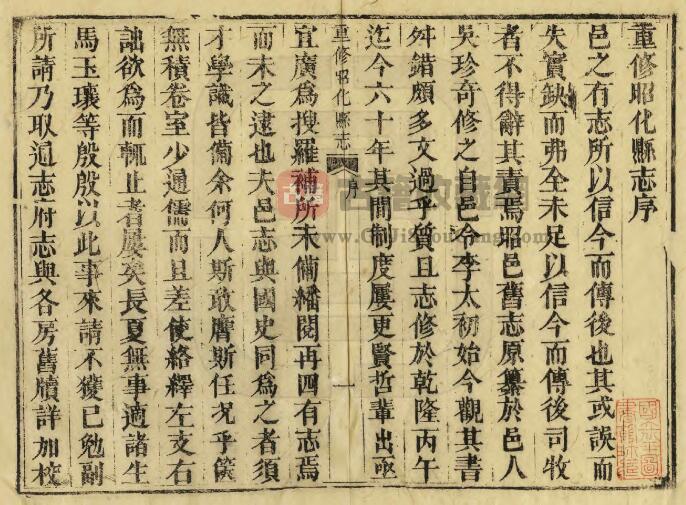 重修昭化縣志序
邑之有志所以信今而傳後也其或誤而
失實缺而弗全未足以信今而傳後司牧
者不得辭其責焉昭邑舊志原纂於邑人
吳珍奇修之自邑令李太初始今觀其書
舛錯頗多文過乎質且志修於乾隆丙午
迄今六十年其間制度屢更賢哲輩出亟
重修昭化縣志
序
一
宜廣為搜羅補所未備繙閱再四有志焉
而未之逮也夫邑志與國史同為之者須
才學識皆備余何人斯敢膺斯任况乎篋
無積卷室少通儒而且差使絡繹左支右
詘欲為而輒止者屢矣長夏無事適諸生
馬玉瓌等殷殷以此事來請不獲已勉副
所請乃取通志府志與各房舊牘詳加校